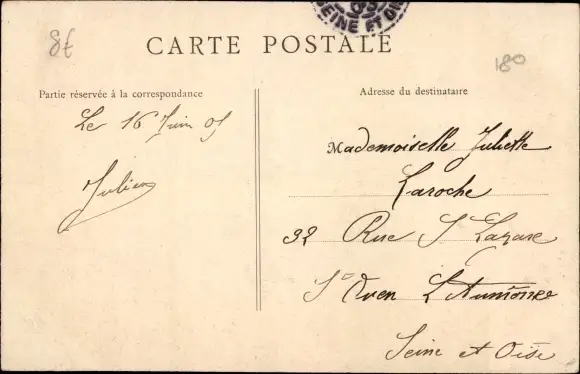 SEINE ET OI
8€
CARTE POSTALE
180
Partie réservée à la correspondance
Le 16 Juin 05
Julien
Adresse du destinataire
Mademoiselle Juliette
Laroche
32 Rue S Lazare
St Ouen L'Aumône
Seine et Oise